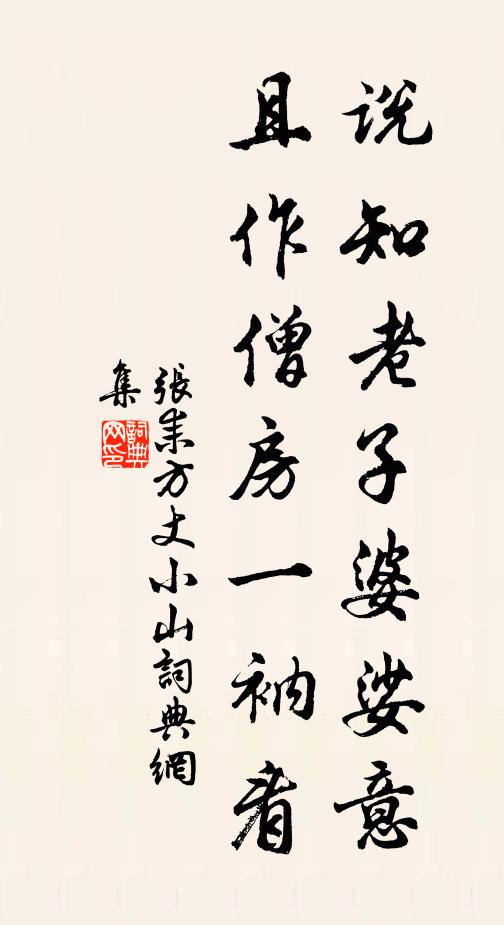 说知老子婆娑意
且作僧房一衲看
張耒方丈小山詞典網
集
詞典
网印